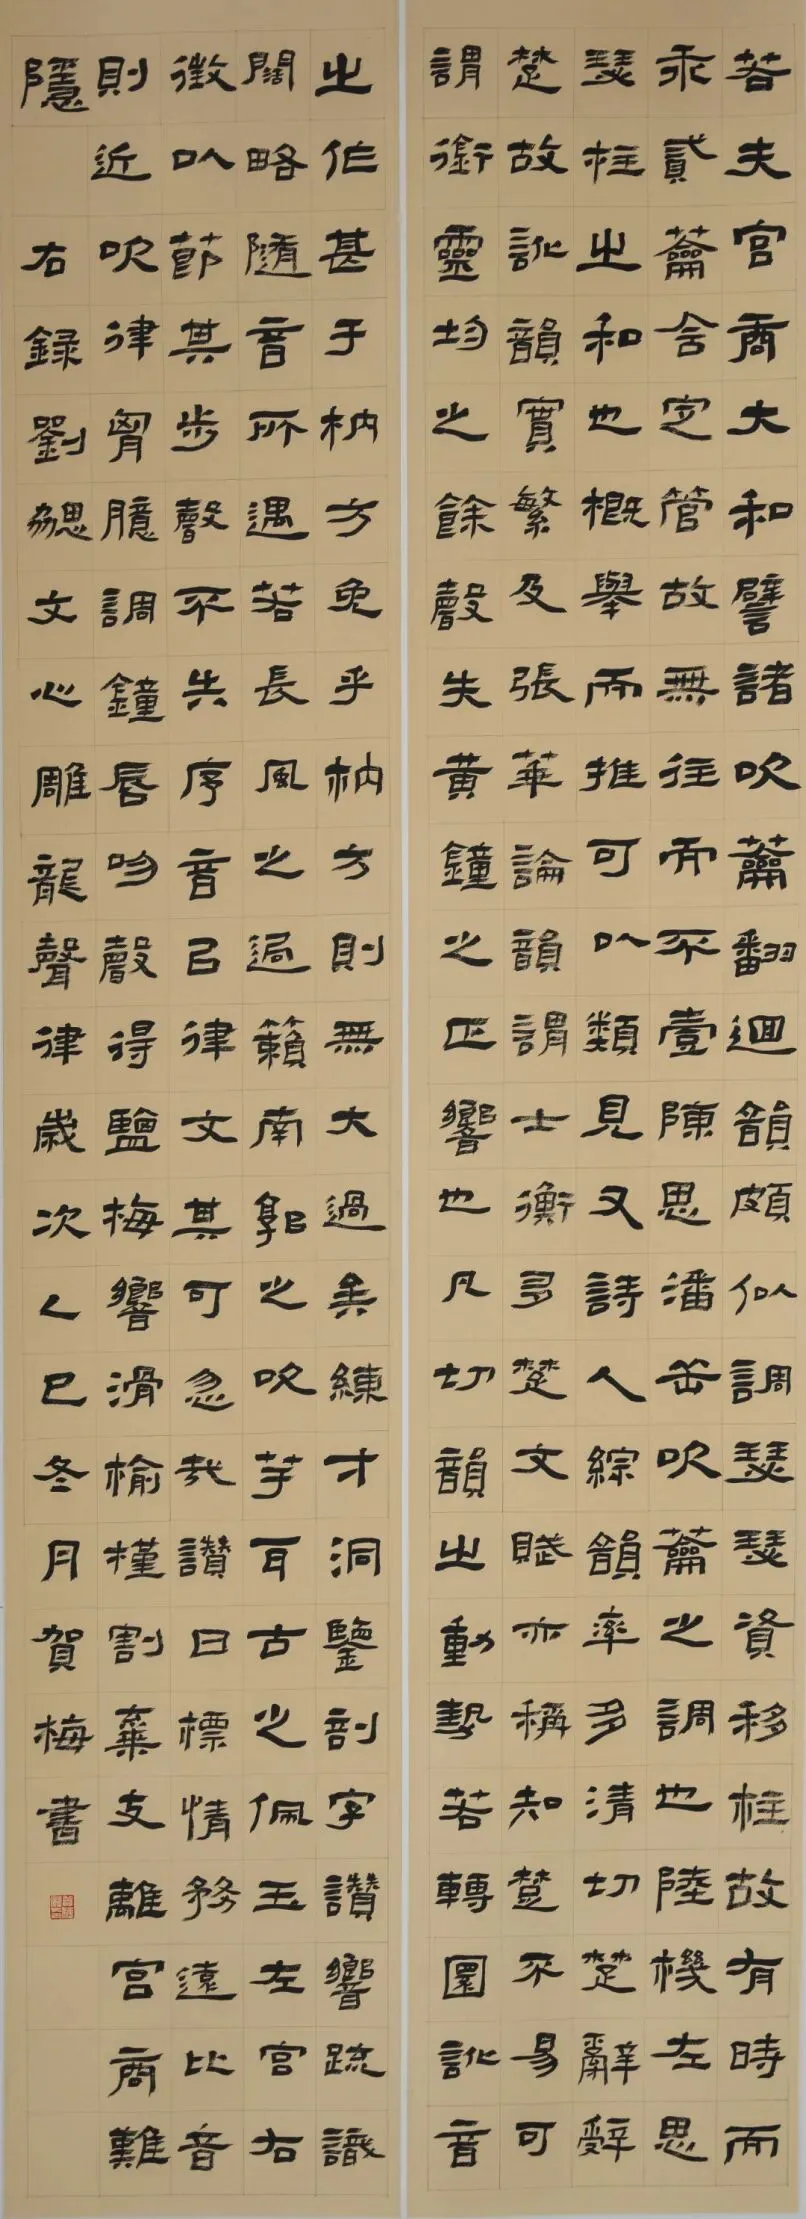 若夫宮商大和譬諸吹籥翻迴韻頗似調瑟瑟資移柱故有時而
乖貳籥含定管故無往而不壹陳思潘岳吹籥之調也陸機左思
瑟柱之和也概舉而推可以類見又詩人綜韻率多清切楚辭辭
楚故訛韻實繁及張華論韻謂士衡多楚文賦亦稱知楚不易可
謂銜靈均之餘聲失黃鐘之正響也凡切韻之動勢若轉圜訛音
之作甚于枘方免乎枘方則無大過矣練才洞鑒剖字讚響疏識
闊略隨音所遇若長風之過籟南郭之吹芋耳古之佩玉左宮右
徵以節其步聲不失序音以律文其可忽哉讚曰標情務遠比音
則近吹律胸臆調鐘唇吻聲得鹽梅響滑榆槿割棄支離宮商難
隱 右錄劉勰文心雕龍聲律歲次乙巳冬月賀梅書